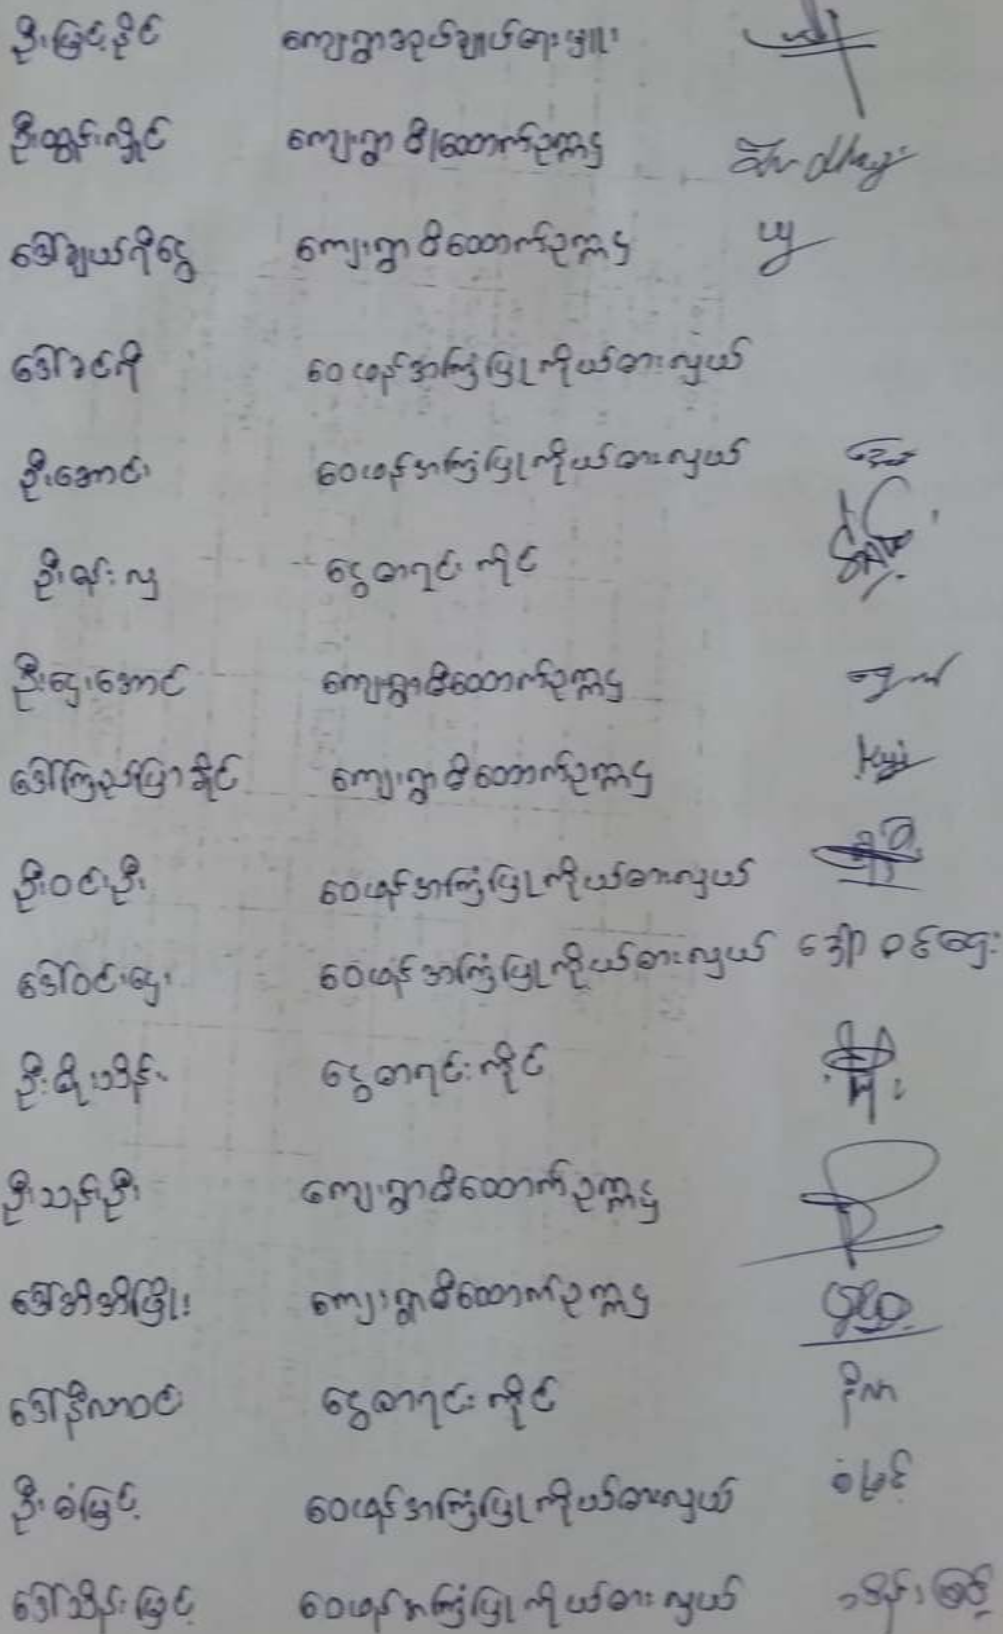 ဦးမြင့်နိုင် ကျေးရွာအုပ်ချုပ်ရေးမှူး
ဦးထွန်းလှိုင် ကျေးရွာ စီထောက်ဥက္ကဋ္ဌ
ဒေါ်ချယ်ရီငွေ ကျေးရွာ စီထောက်ဥက္ကဋ္ဌ ယု
ဒေါ်ခင်ရီ ဝေဖန်အကြံပြုကိုယ်စားလှယ်
ဦးအောင်း ဝေဖန်အကြံပြုကိုယ်စားလှယ်
ဦးစန်းလှ ငွေစာရင်းကိုင်
ဦးဌေးအောင် ကျေးရွာစီထောက်ဥက္ကဋ္ဌ
ဒေါ်ကြည်ပြာခိုင် ကျေးရွာစီထောက်ဥက္ကဋ္ဌ kyi
ဦးဝင်းဦး ဝေဖန်အကြံပြုကိုယ်စားလှယ်
ဒေါ်ဝင်းဌေး ဝေဖန်အကြံပြုကိုယ်စားလှယ်
ဦးစိုးသိန်း ငွေစာရင်းကိုင်
ဦးသန်းဦး ကျေးရွာစီထောက်ဥက္ကဋ္ဌ
ဒေါ်အိအိဖြိုး ကျေးရွာစီထောက်ဥက္ကဋ္ဌ
ဒေါ်နီလာဝင်း ငွေစာရင်းကိုင် နီလာ
ဦးစံမြင့် ဝေဖန်အကြံပြုကိုယ်စားလှယ် စံမြင့်
ဒေါ်သိန်းမြင့် ဝေဖန်အကြံပြုကိုယ်စားလှယ် သိန်းမြင့်